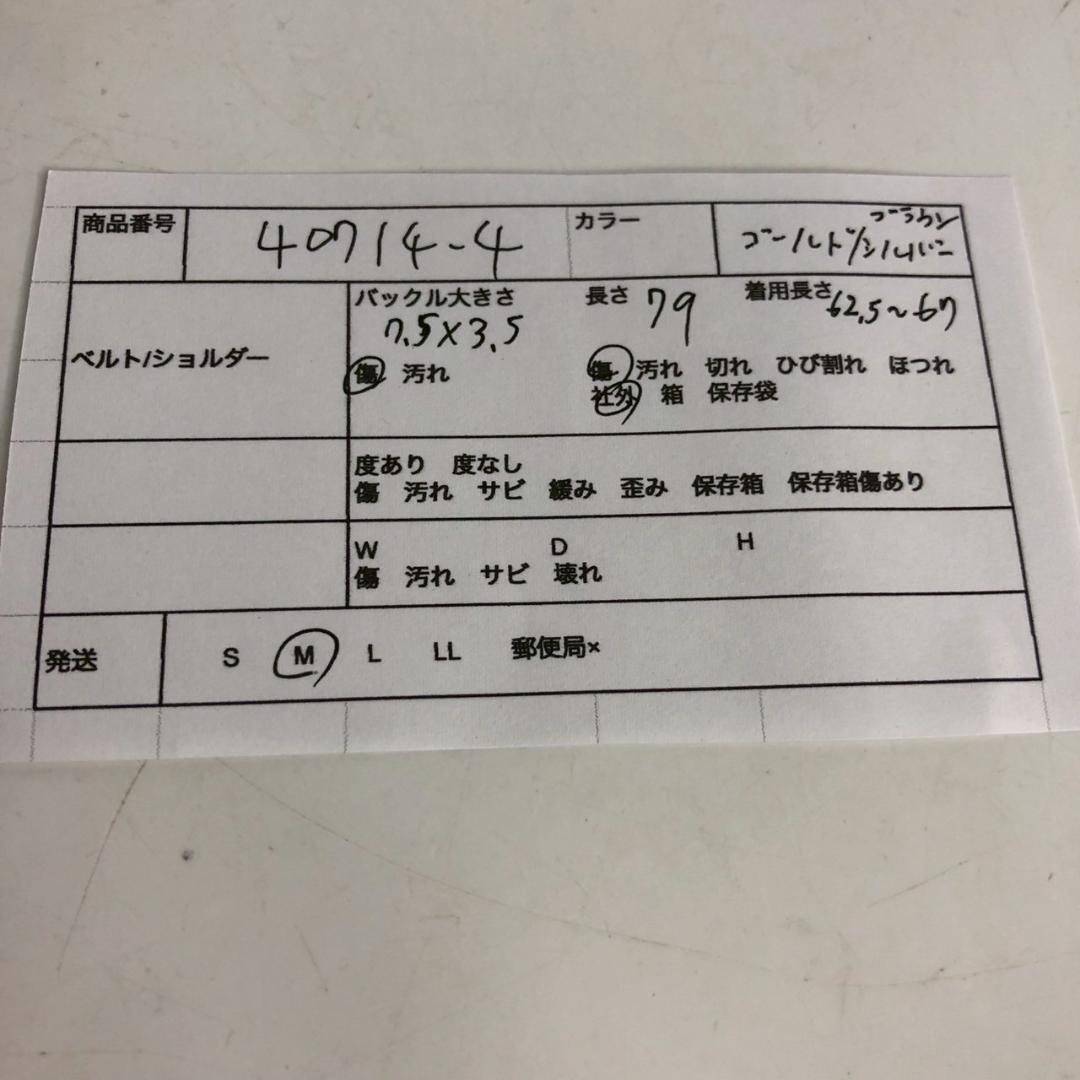 商品番号 40714-4 カラー ブラウン
ゴールド/シルバー
バックル大きさ 長さ 79 着用長さ 62.5~67
7.5×3.5
ベルト/ショルダー
傷 汚れ 傷 汚れ 切れ ひび割れ ほつれ
社外 箱 保存袋
度あり 度なし
傷 汚れ サビ 緩み 歪み 保存箱 保存箱傷あり
W D H
傷 汚れ サビ 壊れ
発送 S M L LL 郵便局×